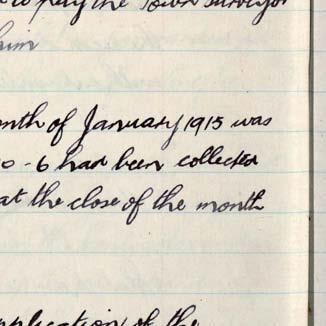 to pay the Town Surveyor
him
onth of January 1915 was
0 - 6 had been collected
at the close of the month
application of the